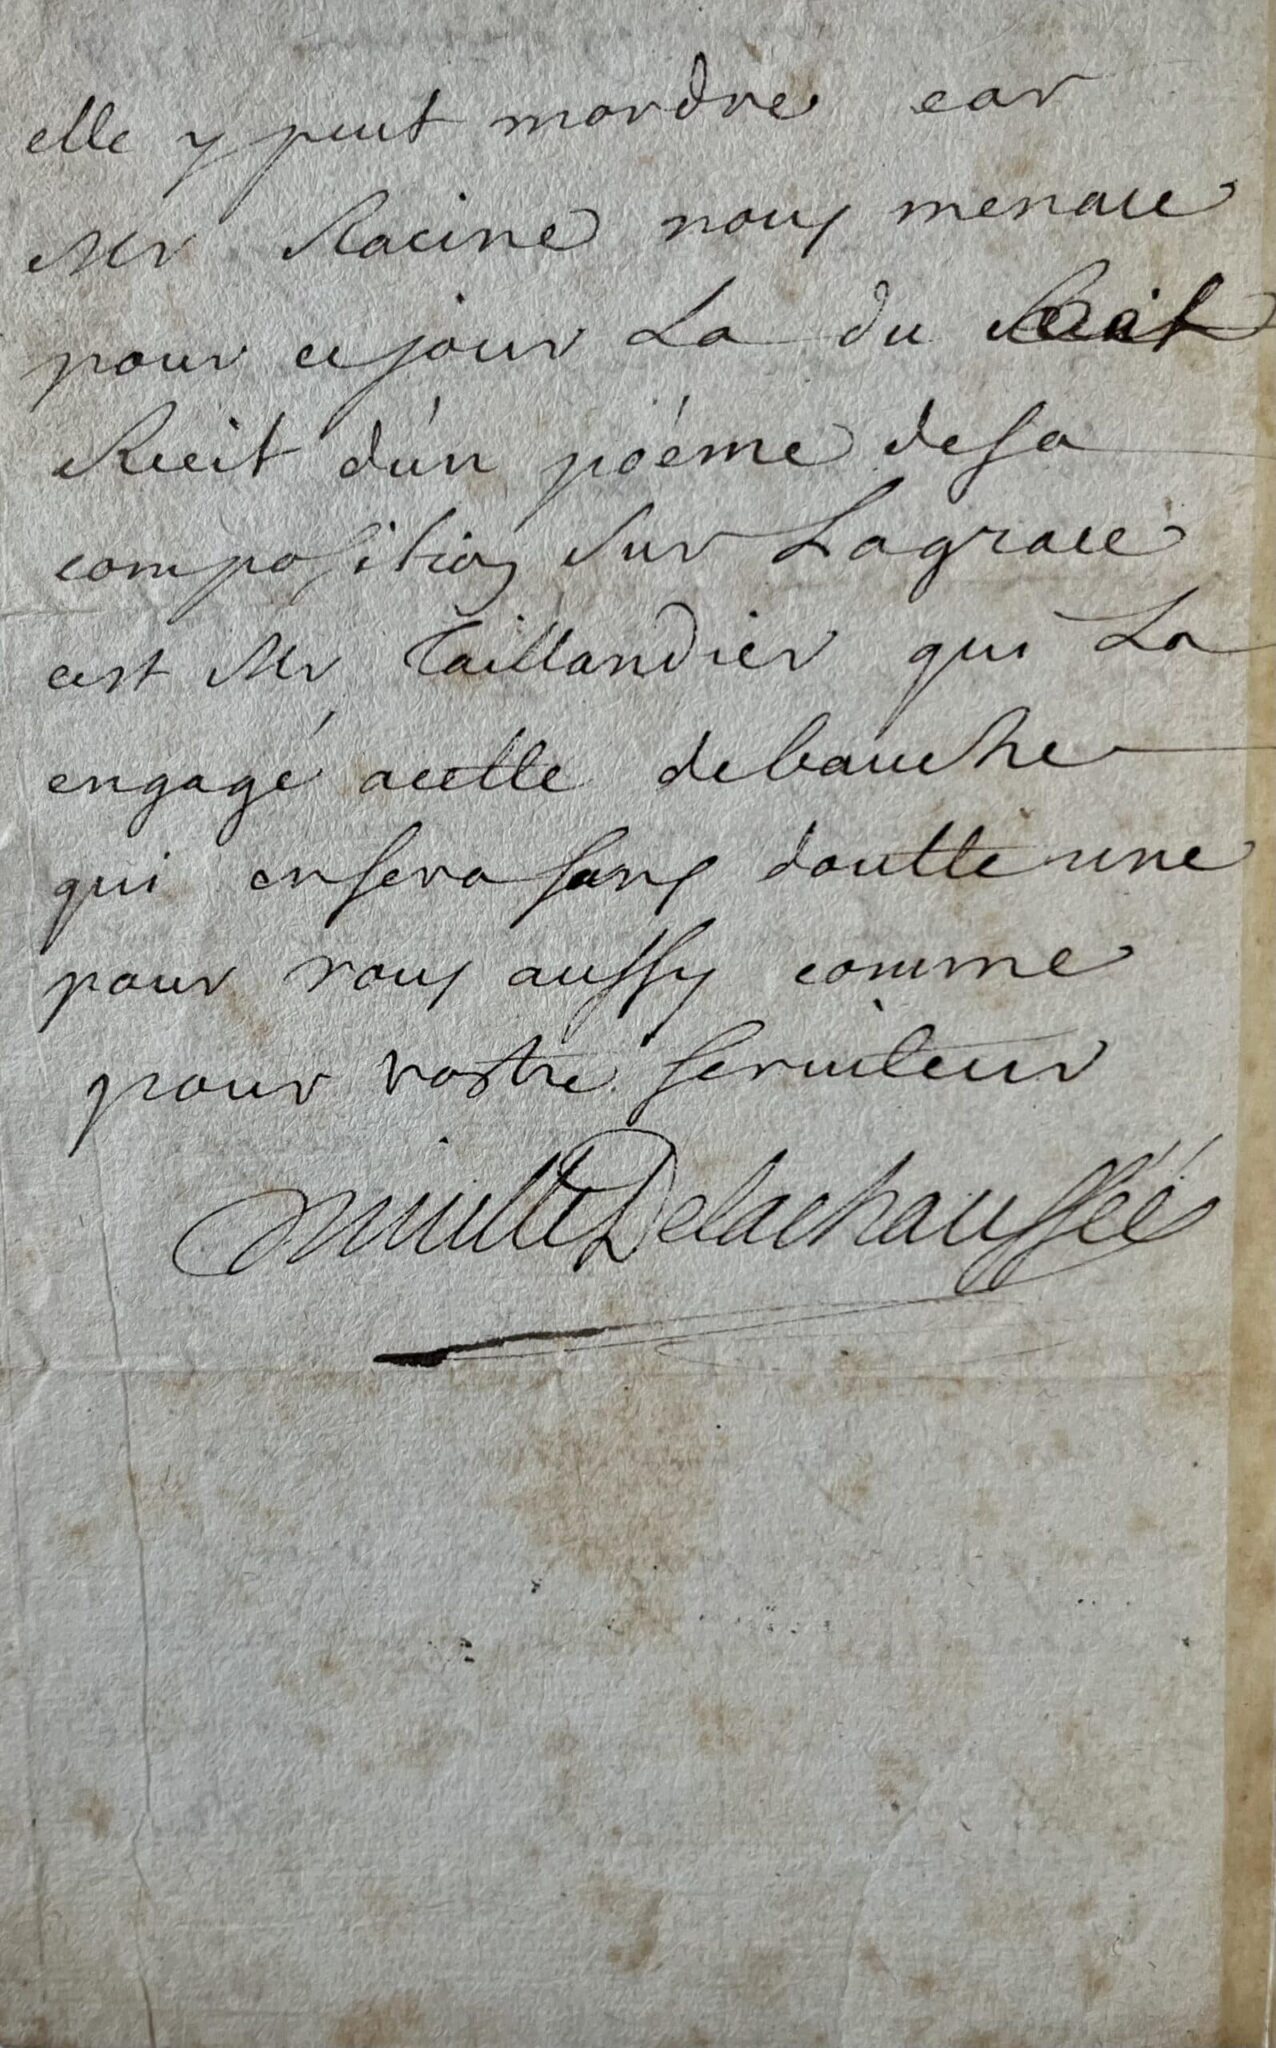 elle y peut mordre car
Mr Racine nous menace
pour ce jour La du
Recit d'un poéme de sa
composition sur Lagrace
cest Mr Taillandier qui La
engagé acette debauche
qui ensera sans doutte une
pour vous aussy comme
pour vostre serviteur
Nivelle Delachaussée